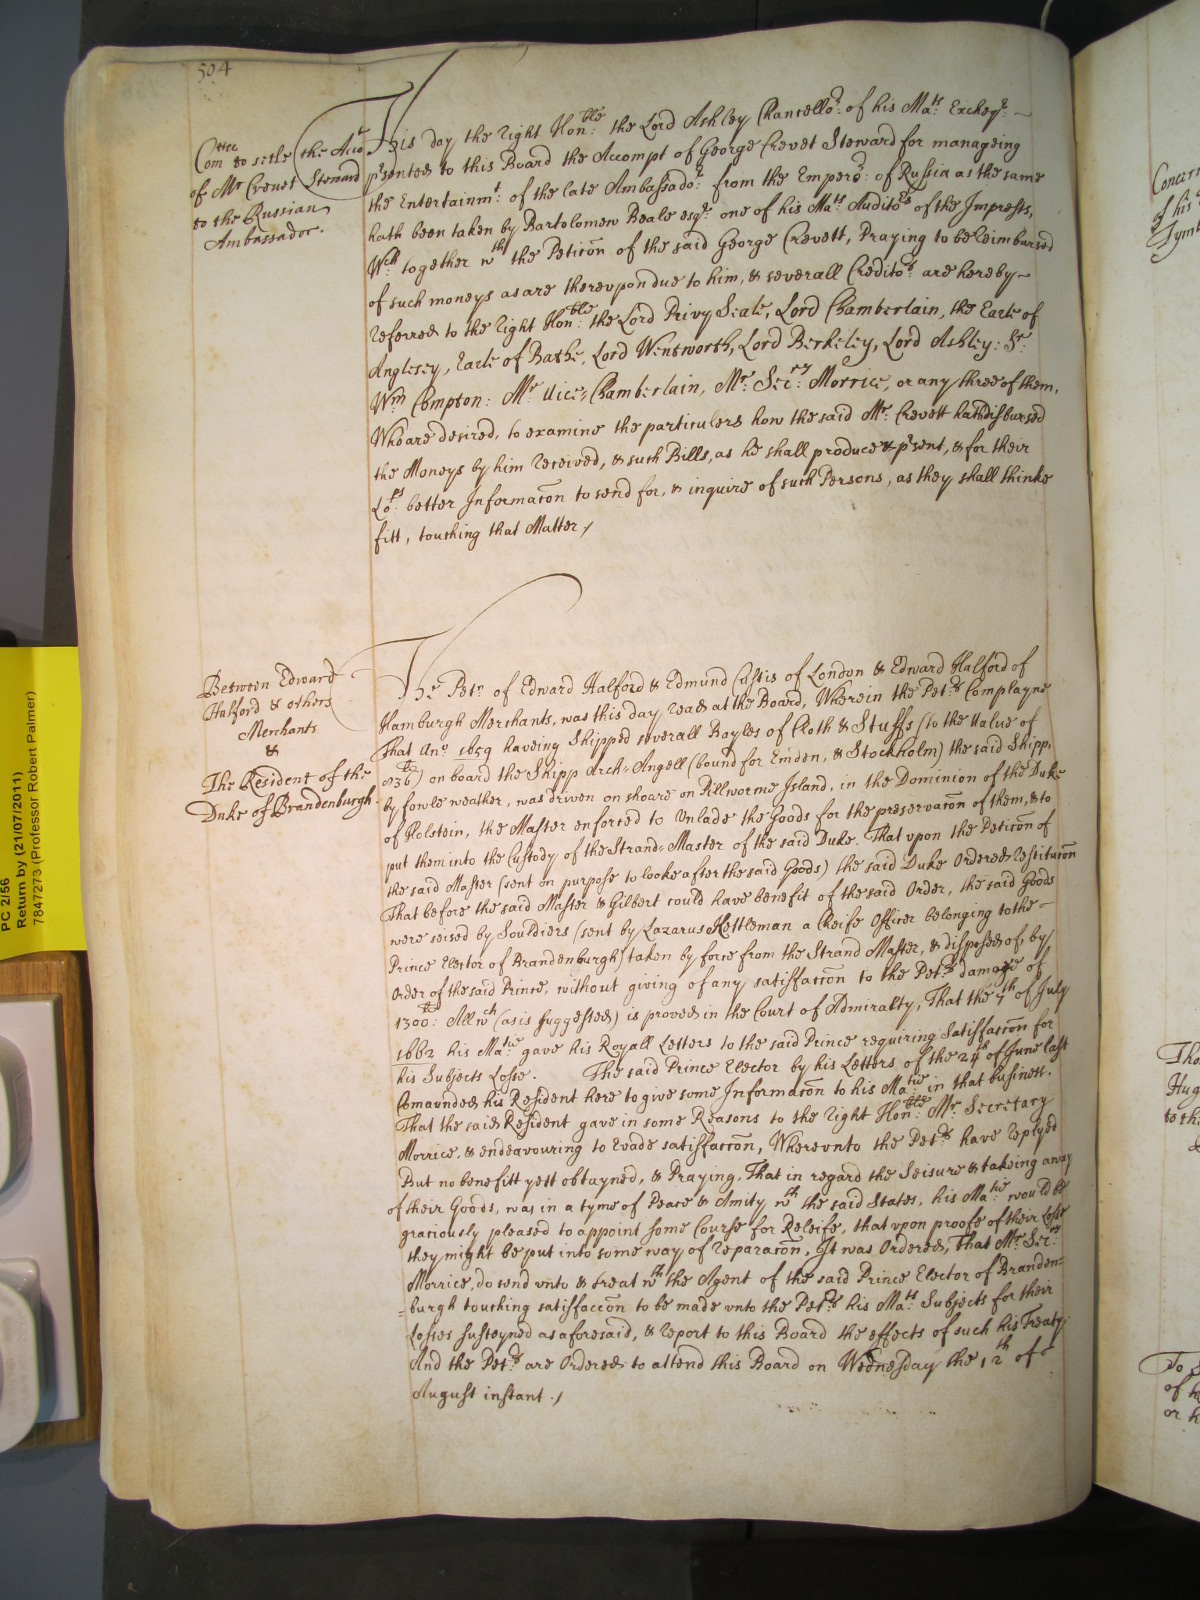 504
Com̃tee to setle the Acco
of Mr Crevet Steward
to the Russian
Ambassador.
This day the right Hon:ble the Lord Ashley Chancellor: of his Mats: Excheqr: —
prsented to this Board the Accompt of George Crevet Steward for manageing
the Entertainmt: of the late Ambassador: from the Emperor: of Russia as the same
hath been taken by Bartolomew Beale esqr: one of his Mats Auditors of the Imprests,
Wch together wth the Peticõn of the said George Crevett, Praying to be reimbursed
of such moneys as are therevpon due to him, & severall Creditors: are hereby —
referred to the right Hon:ble the Lord Privy Seale, Lord Chamberlain, the Earle of
Anglesey, Earle of Bathe, Lord Wentworth, Lord Berkeley, Lord Ashley: Sr:
Wm Compton: Mr Vice-Chamberlain, Mr: Secry: Morrice, or any three of them,
Who are desired, to examine the particulers how the said Mr: Crevett hath disbursed
the Moneys by him received, & such Bills, as he shall produce & prsent, & for their
Lops: better Informacõn to send for, & inquire of such Persons, as they shall thinke
fitt, touching that Matter /
Between Edward
Halford & others
Merchants
&
The Resident of the
Duke of Brandenburgh
The Petn: of Edward Halford & Edmund Custis of London & Edward Halford of
Hamburgh Merchants, was this day read at the Board, Wherein the Petrs Complayne
That Ano: 1659 haveing Shipped severall Bayles of Cloth & Stuffs (to the Value of
836li) on board the Shipp Arch-Angell (bound for Emden, & Stockholm) the said Shipp,
by fowle weather, was driven on shoare on Pillworme Island, in the Dominion of the Duke
of Holstein, the Master enforced to Vnlade the Goods for the preservacõn of them, & to
put them into the Custody of the Strand-Master of the said Duke. That vpon the Peticõn of
the said Master (sent on purpose to looke after the said Goods) the said Duke Ordered restitucõn
That before the said Master & Gilbert could have benefit of the said Order, the said Goods
were seised by Souldiers (sent by Lazarus Kettleman a Cheife Officer belonging to the —
Prince Elector of Brandenburgh) taken by force from the Strand Master, & disposed of, by
Order of the said Prince, without giving of any satisfaccõn to the Petrs damage of
1300li: All wch (as is suggested) is proved in the Court of Admiralty, That the 7th of July
1662 his Matie: gave his Royall Letters to the said Prince requiring Satisfaccõn for
his Subjects Losse. The said Prince Elector by his Letters of the 24th of June last
Com̃aunded his Resident here to give some Informacõn to his Matie: in that business.
That the said Resident gave in some Reasons to the right Hon:ble Mr: Secretary
Morrice, & endeavouring to Evade satisfaccõn, Wherevnto the Petrs have replyed
But no benefitt yett obtayned, & Praying, That in regard the Seisure & takeing away
of their Goods, was in a tyme of Peace & Amity wth the said States, his Matie: would be
graciously pleased to appoint some Course for Releife, that vpon proofe of their Losse
they might be put into some way of reparacõn, It was Ordered, That Mr Secry:
Morrice, do send vnto & treat wth the Agent of the said Prince Elector of Branden=
=burgh touching satisfaccõn to be made vnto the Petrs his Mats: Subjects for their
Losses susteyned as aforesaid, & report to this Board the effects of such his Treaty:
And the Petrs are Ordered to attend this Board on Wednesday the 12th of
August instant. /
PC 2/56
Return by (21/07/2011)
7847273 (Professor Robert Palmer)
Concern
of his
or h